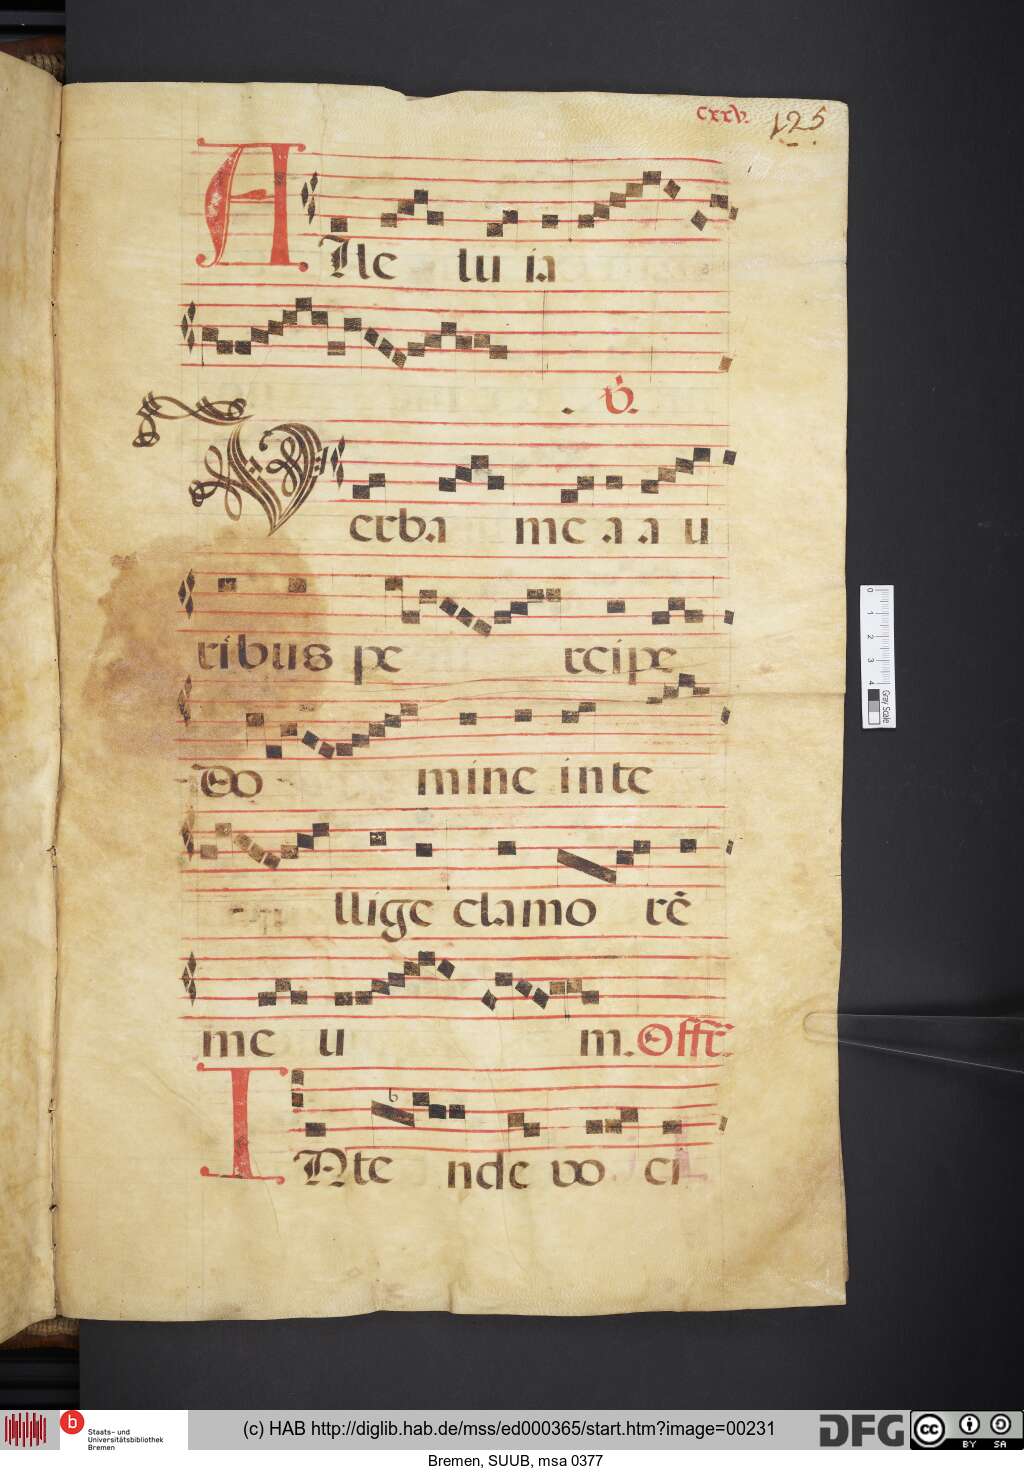 cxxv. 125
Alle lu ia
℣.
Verba me a a u
ribus pe rcipe
Do mine inte
llige clamo rē
me u m. Offr̄.
INte nde vo ci
0 1 2 3 4
Gray Scale
b
Staats- und
Universitätsbibliothek
Bremen
(c) HAB http://diglib.hab.de/mss/ed000365/start.htm?image=00231
DFG
cc BY SA
Bremen, SUUB, msa 0377